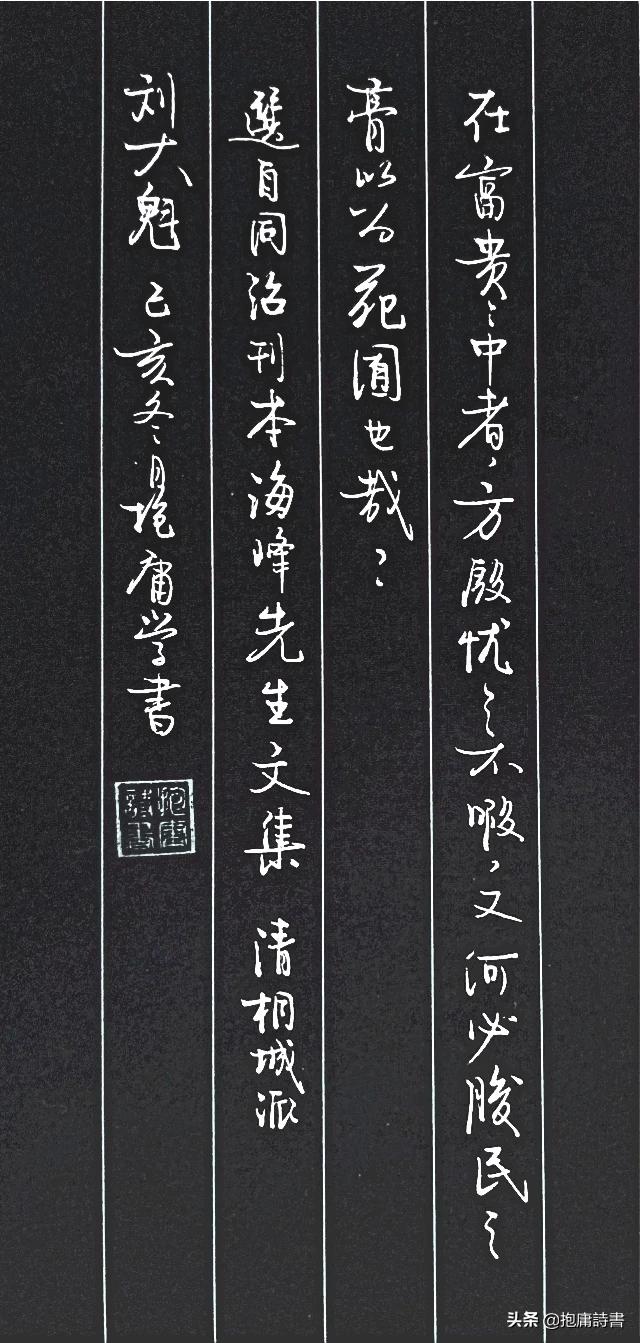 在富貴之中者，方殷忧之不暇，又何必朘民之
膏以为苑囿也哉！
選自同治刊本海峰先生文集 清桐城派
刘大魁 己亥冬月抱庸学書
抱庸藏書
头条 @抱庸詩書